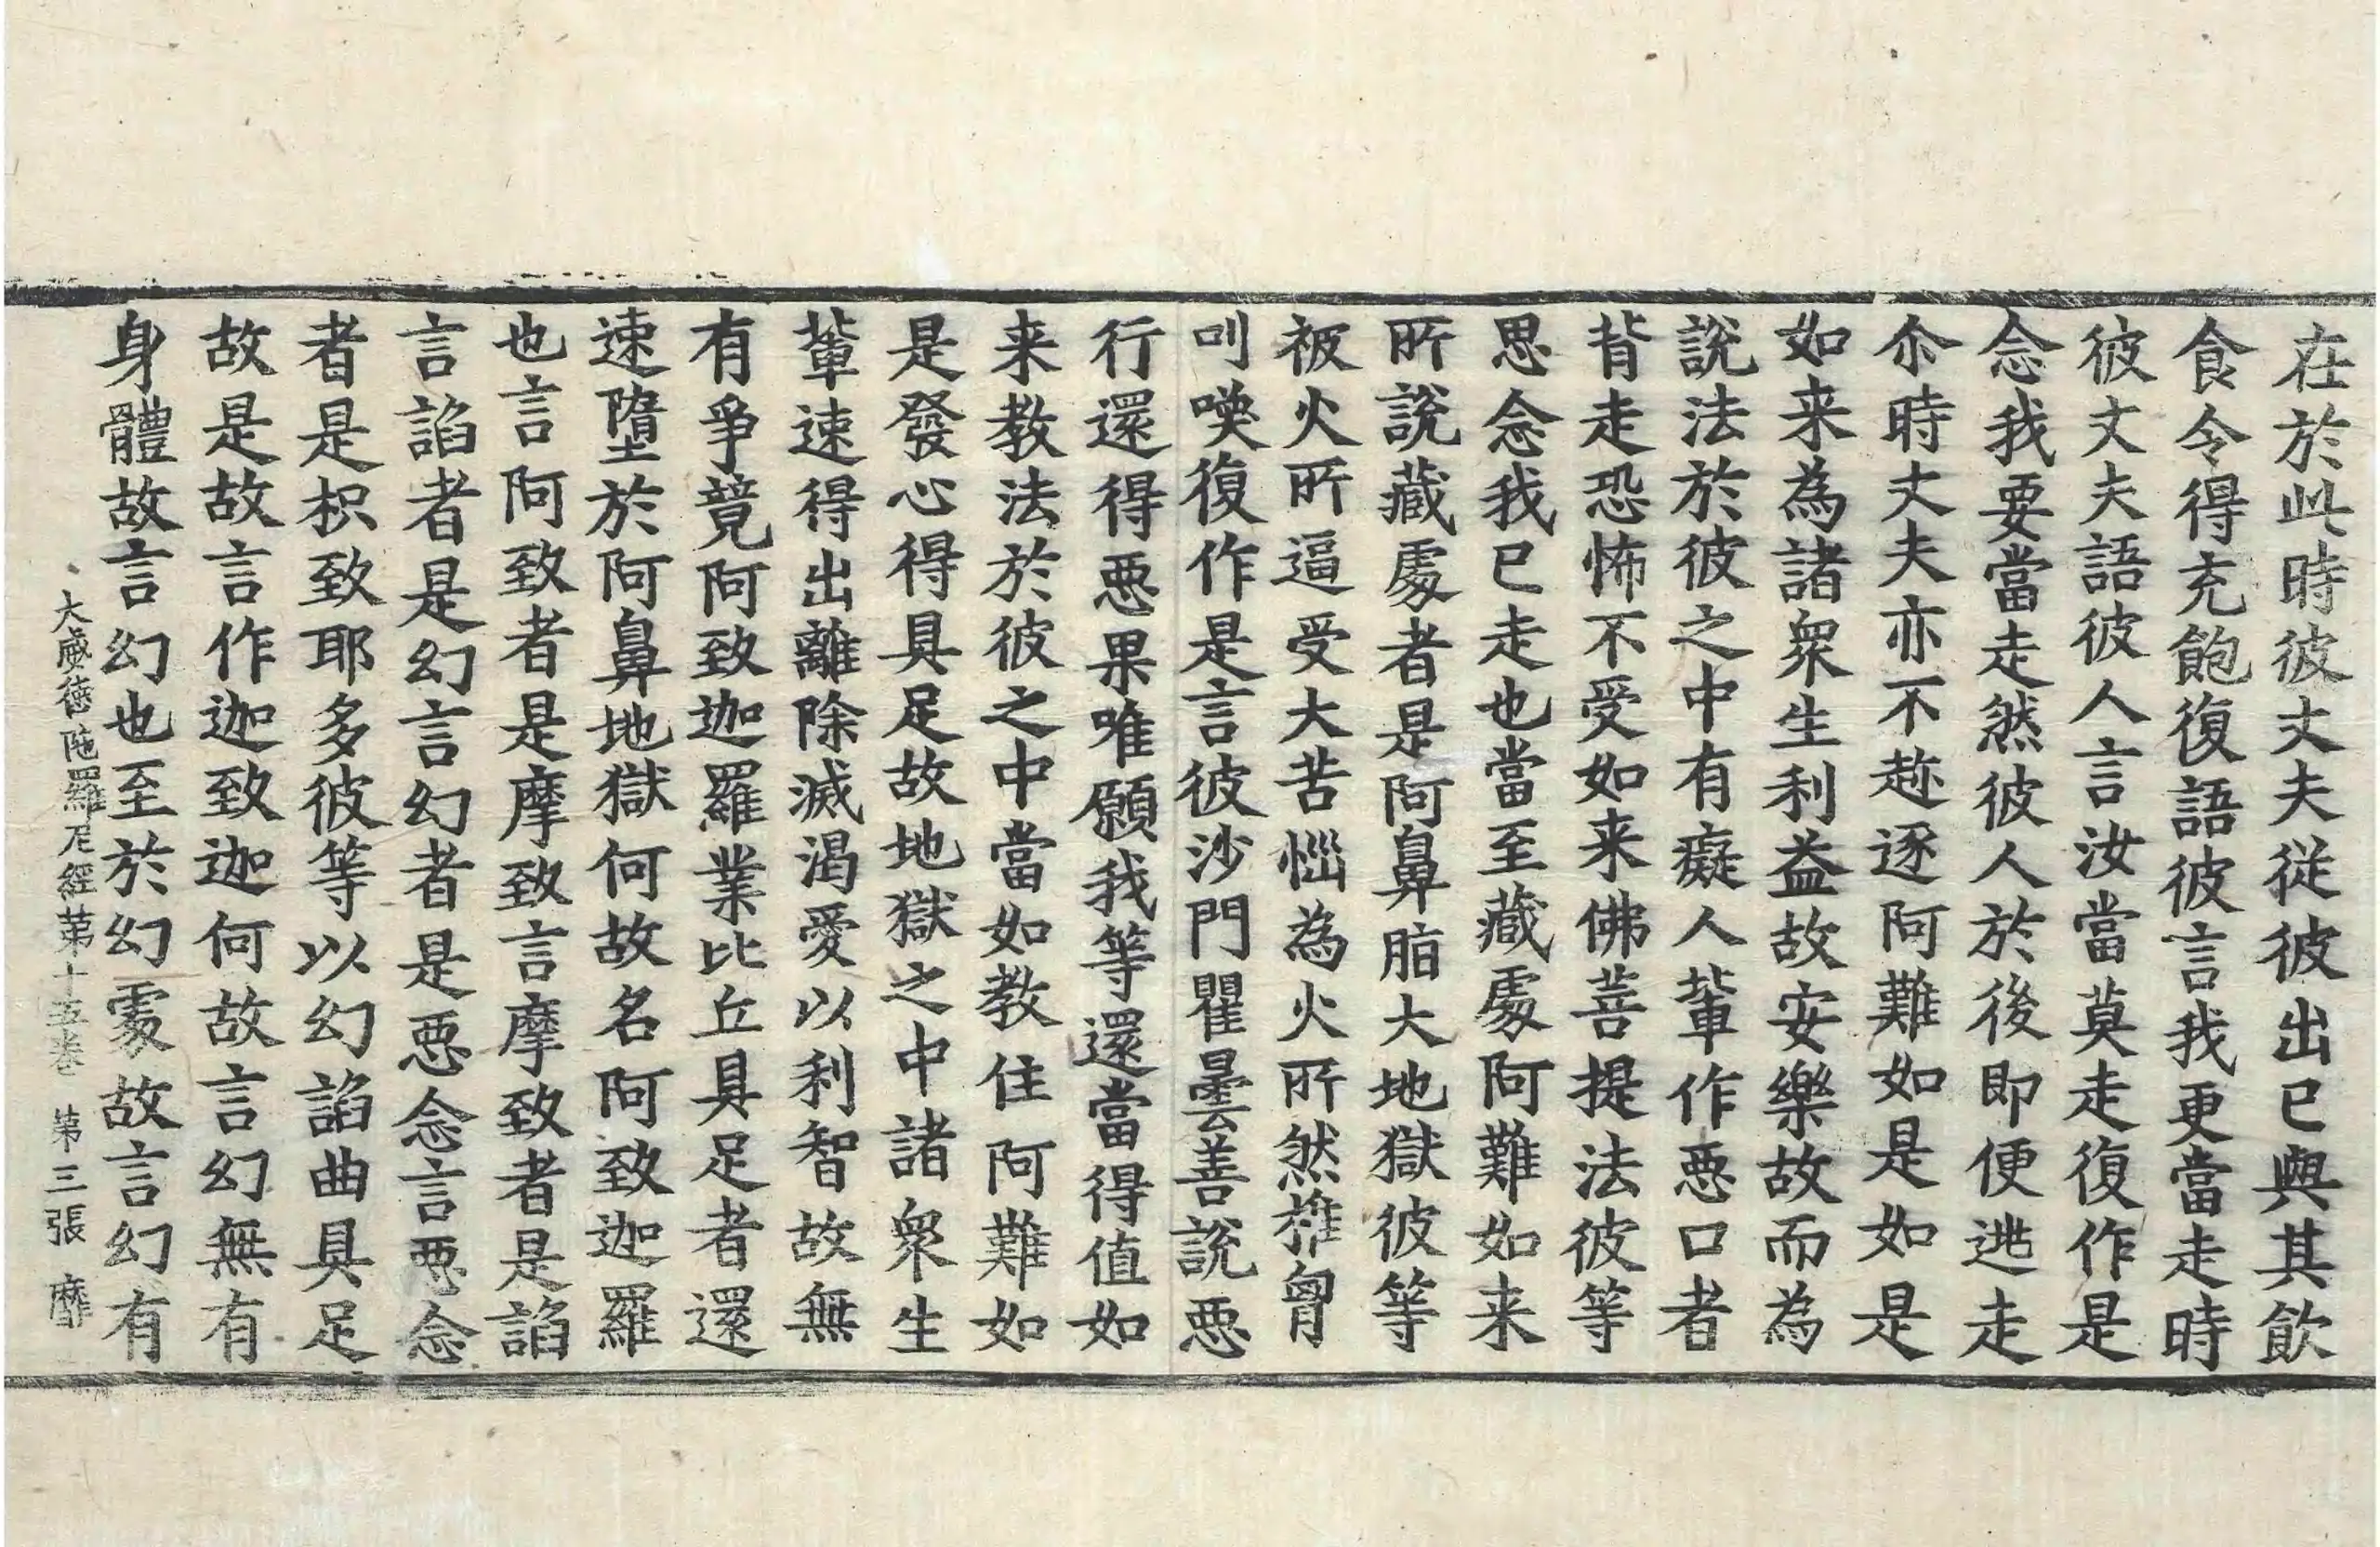 在於此時彼丈夫從彼出已與其飲
食令得充飽復語彼言我更當走時
彼丈夫語彼人言汝當莫走復作是
念我要當走然彼人於後即便逃走
尒時丈夫亦不趂逐阿難如是如是
如来為諸衆生利益故安樂故而為
說法於彼之中有癡人軰作惡口者
背走恐怖不受如来佛菩提法彼等
思念我已走也當至藏處阿難如来
所說藏處者是阿鼻脂大地獄彼等
被火所逼受大苦惱為火所然椎胷
叫喚復作是言彼沙門瞿曇善說惡
行還得惡果唯願我等還當得值如
来教法於彼之中當如教住阿難如
是發心得具足故地獄之中諸衆生
軰速得出離除滅渴愛以利智故無
有爭競阿致迦羅業比丘具足者還
速墮於阿鼻地獄何故名阿致迦羅
也言阿致者是摩致言摩致者是諂
言諂者是幻言幻者是惡念言惡念
者是枳致耶多彼等以幻諂曲具足
故是故言作迦致迦何故言幻無有
身體故言幻也至於幻處故言幻有
大威德陁羅尼經第十五卷 第三張 靡